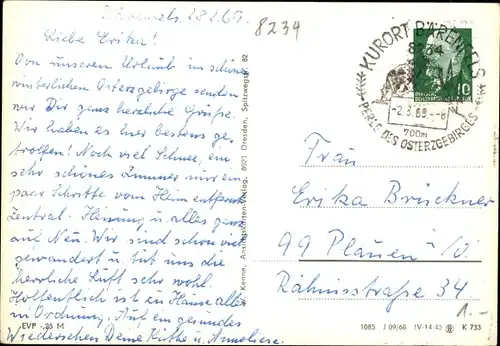 Bärenfels, 28.2.69.
8234
Liebe Erika!
Von unserem Urlaub im schönen
winterlichen Osterzgebirge senden
wir Dir ganz herzliche Grüße.
Wir haben es hier bestens ge-
troffen! Noch viel Schnee, ein
sehr schönes Zimmer nur ein
paar Schritte vom Heim entfernt
Zentral-Heizung u. alles ganz
auf Neu. Wir sind schon viel
gewandert u. tut uns die
herrliche Luft sehr wohl.
Hoffentlich ist zu Hause alles
in Ordnung. Auf ein gesundes
Wiedersehen Deine Käthe u. Anneliese.
EVP -,25 M
W. Kenne, Ansichtskarten-Verlag, 8021 Dresden, Spitzwegstr. 82
KURORT BÄRENFELS
8234
-2.3.69.--8
700m
PERLE DES OSTERZGEBIRGES
10
Frau
Erika Brückner
99 Plauen i/V.
Rähnisstraße 34
1.-
1085 J 09/68 IV-14-45 K 733